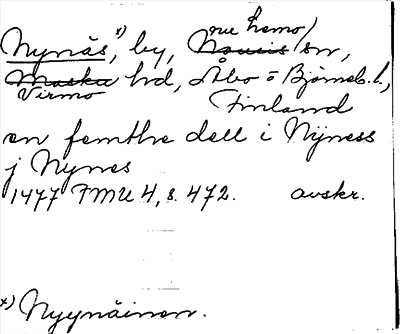 nue Lemo/
Nynäs, x) by, Nousis sn,
Masku hd, Åbo o Björneb. l.,
Virmo Finland
en femthe deel i Nijness
j Nynes
1477 FMU 4, s. 472. avskr.
x) Nyynäinen.